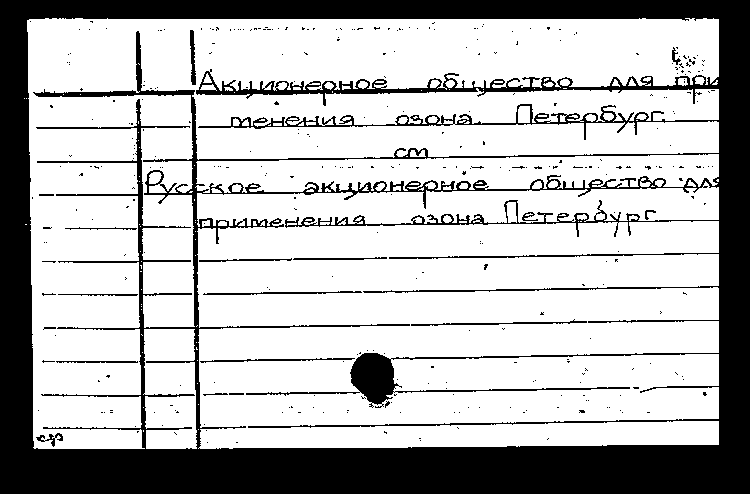 Акционерное общество для при
менения озона. Петербург.
см
Русское акционерное общество для
применения озона Петербург.